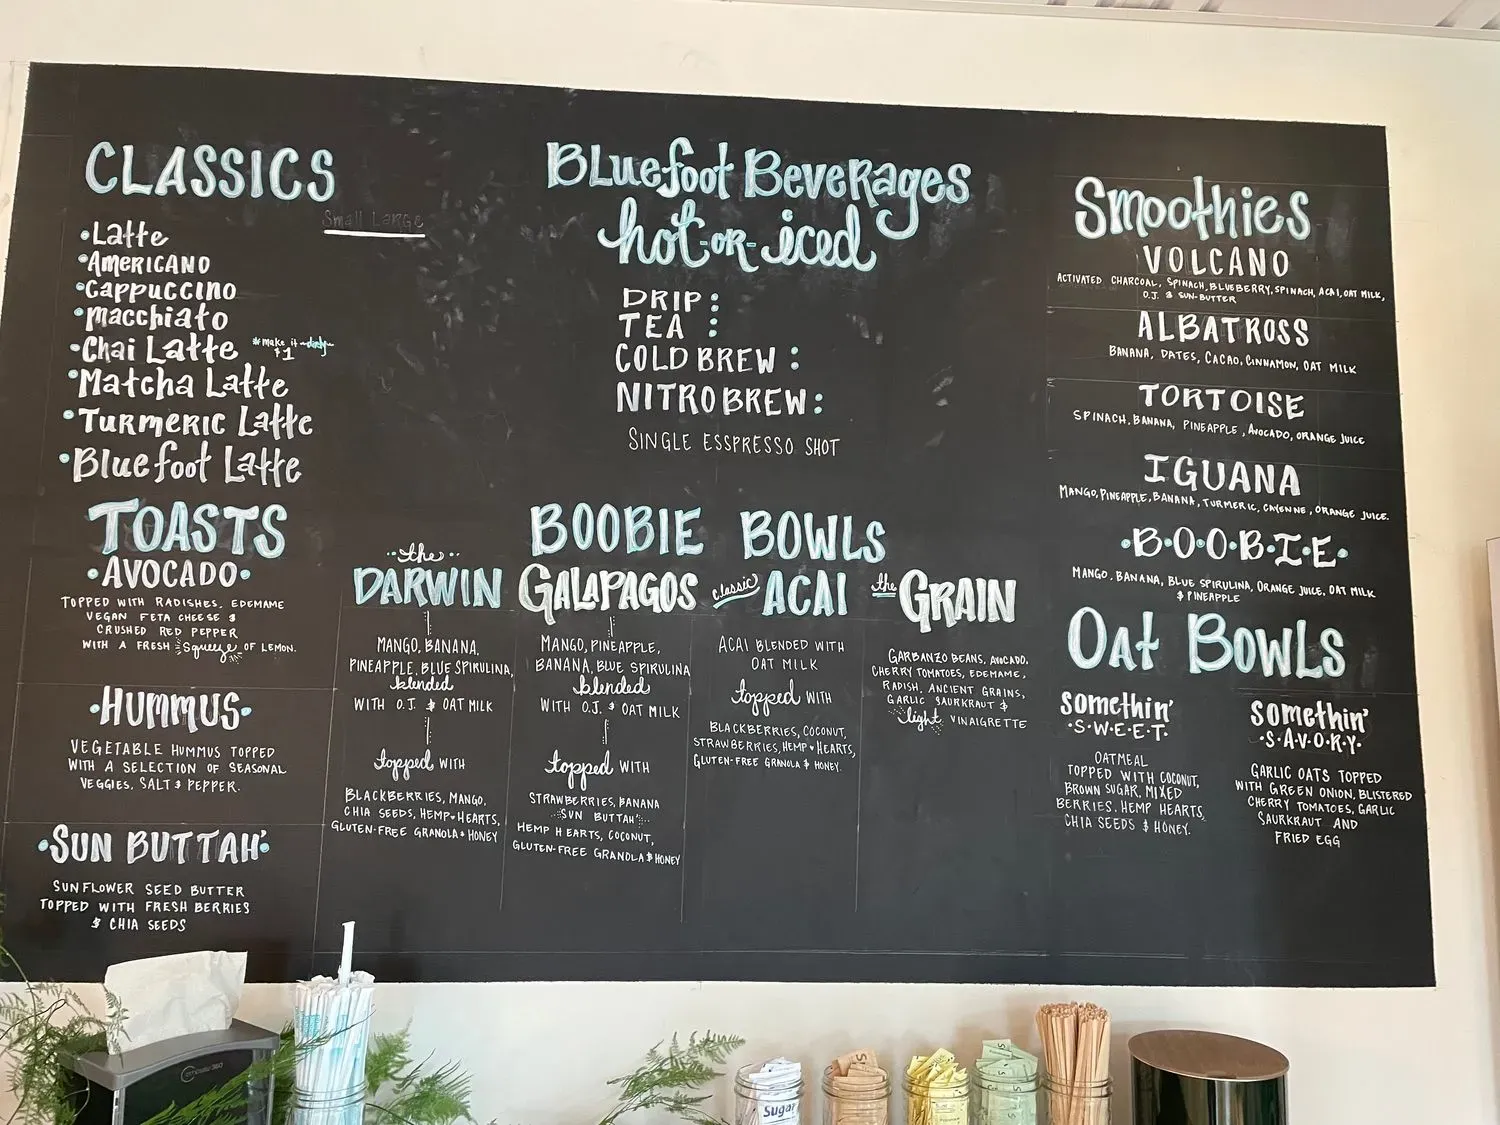 CLASSICS
Small Large
Latte
AMERICANO
CAPPUCCINO
macchiato
Chai Latte *make it dirty
$1
Matcha Latte
Turmeric Latte
Bluefoot Latte
TOASTS
AVOCADO
TOPPED WITH RADISHES, EDEMAME
VEGAN FETA CHEESE &
CRUSHED RED PEPPER
WITH A FRESH Squeeze OF LEMON.
HUMMUS
VEGETABLE HUMMUS TOPPED
WITH A SELECTION OF SEASONAL
VEGGIES, SALT & PEPPER.
SUN BUTTAH'
SUNFLOWER SEED BUTTER
TOPPED WITH FRESH BERRIES
& CHIA SEEDS
Bluefoot Beverages
hot-OR-iced
DRIP:
TEA :
COLD BREW :
NITRO BREW:
SINGLE ESSPRESSO SHOT
BOOBIE BOWLS
the
DARWIN
MANGO, BANANA,
PINEAPPLE, BLUE SPIRULINA,
blended
WITH O.J. & OAT MILK
topped WITH
BLACKBERRIES, MANGO,
CHIA SEEDS, HEMP HEARTS,
GLUTEN-FREE GRANOLA & HONEY
GALAPAGOS
MANGO, PINEAPPLE,
BANANA, BLUE SPIRULINA
blended
WITH O.J. & OAT MILK
topped WITH
STRAWBERRIES, BANANA
SUN BUTTAH'
HEMP HEARTS, COCONUT,
GLUTEN-FREE GRANOLA & HONEY
classic ACAI
ACAI BLENDED WITH
OAT MILK
topped WITH
BLACKBERRIES, COCONUT,
STRAWBERRIES, HEMP HEARTS,
GLUTEN-FREE GRANOLA & HONEY.
the GRAIN
GARBANZO BEANS, AVOCADO,
CHERRY TOMATOES, EDEMAME,
RADISH, ANCIENT GRAINS,
GARLIC SAURKRAUT &
light VINAIGRETTE
Smoothies
VOLCANO
ACTIVATED CHARCOAL, SPINACH, BLUEBERRY, SPINACH, ACAI, OAT MILK,
O.J. & SUN-BUTTER
ALBATROSS
BANANA, DATES, CACAO, CINNAMON, OAT MILK
TORTOISE
SPINACH, BANANA, PINEAPPLE, AVOCADO, ORANGE JUICE
IGUANA
MANGO, PINEAPPLE, BANANA, TURMERIC, CAYENNE, ORANGE JUICE.
B·O·O·B·I·E
MANGO, BANANA, BLUE SPIRULINA, ORANGE JUICE, OAT MILK
& PINEAPPLE
Oat Bowls
somethin'
S·W·E·E·T
OATMEAL
TOPPED WITH COCONUT,
BROWN SUGAR, MIXED
BERRIES, HEMP HEARTS,
CHIA SEEDS & HONEY.
somethin'
S·A·V·O·R·Y
GARLIC OATS TOPPED
WITH GREEN ONION, BLISTERED
CHERRY TOMATOES, GARLIC
SAURKRAUT AND
FRIED EGG
Sugar